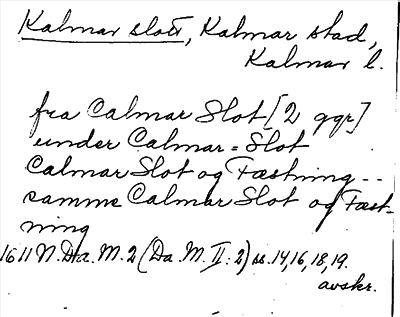 Kalmar slott, Kalmar stad,
Kalmar l.
fra Calmar Slot [2 ggr]
under Calmar=Slot
Calmar Slot og Fæstning --
samme Calmar Slot og Fæst-
ning
1611 N. Da. M. 2 (Da. M. II:2) ss. 14, 16, 18, 19.
avskr.